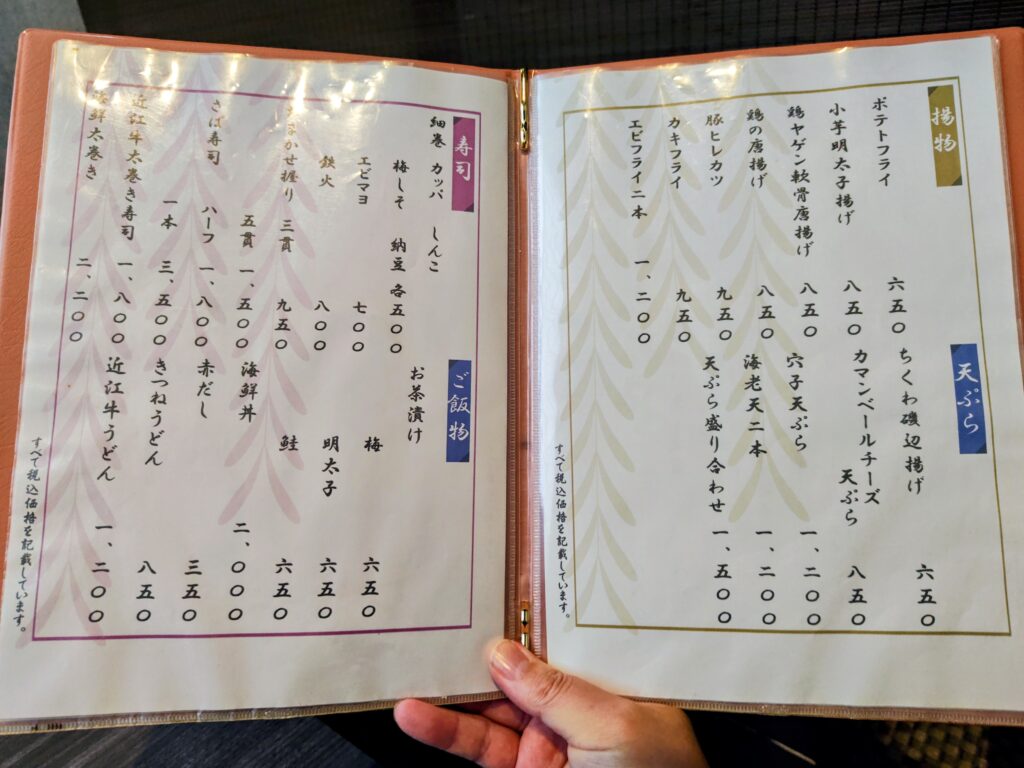 揚物
ポテトフライ 六五〇
小芋明太子揚げ 八五〇
鶏ヤゲン軟骨唐揚げ 八五〇
鶏の唐揚げ 八五〇
豚ヒレカツ 九五〇
カキフライ 九五〇
エビフライ二本 一、二〇〇
天ぷら
ちくわ磯辺揚げ 六五〇
カマンベールチーズ
天ぷら 八五〇
穴子天ぷら 一、二〇〇
海老天二本 一、二〇〇
天ぷら盛り合わせ 一、五〇〇
すべて税込価格を記載しています。
寿司
細巻 カッパ しんこ
梅しそ 納豆 各五〇〇
エビマヨ 七〇〇
鉄火 八〇〇
おまかせ握り 三貫 九五〇
五貫 一、五〇〇
さば寿司 ハーフ 一、八〇〇
一本 三、五〇〇
近江牛太巻き寿司 一、八〇〇
海鮮太巻き 二、二〇〇
ご飯物
お茶漬け
梅 六五〇
明太子 六五〇
鮭 六五〇
海鮮丼 二、〇〇〇
赤だし 三五〇
きつねうどん 八五〇
近江牛うどん 一、二〇〇
すべて税込価格を記載しています。